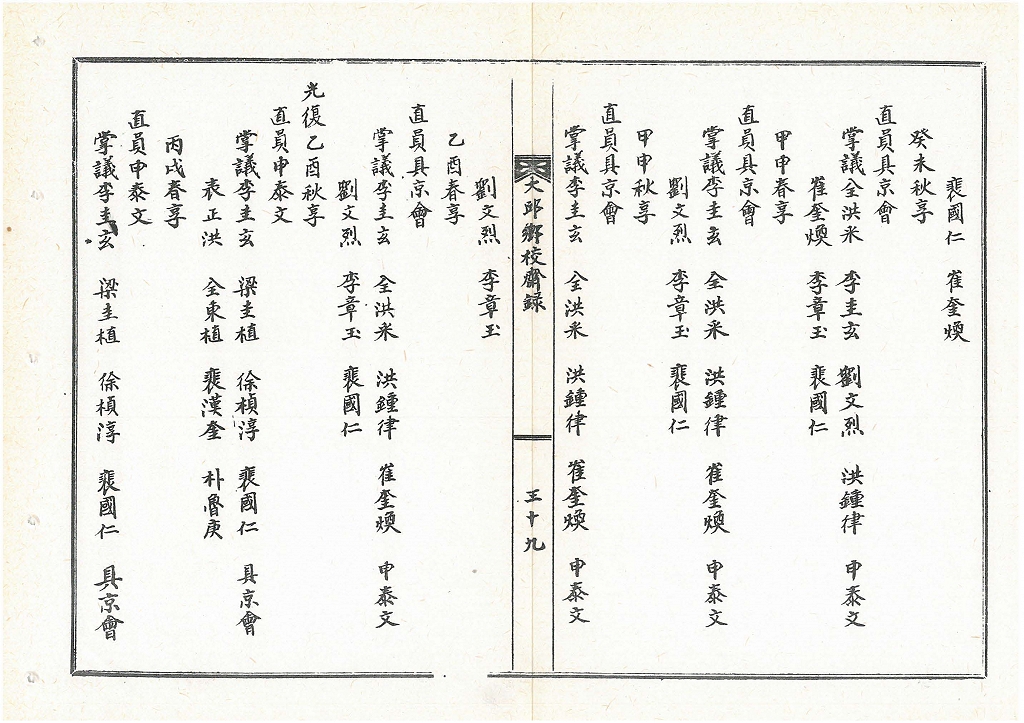 裵國仁 崔奎煥
癸未秋享
直員具京會
掌議全洪釆 李圭玄 劉文烈 洪鍾律 申泰文
崔奎煥 李章玉 裵國仁
甲申春享
直員具京會
掌議李圭玄 全洪釆 洪鍾律 崔奎煥 申泰文
劉文烈 李章玉 裵國仁
甲申秋享
直員具京會
掌議李圭玄 全洪釆 洪鍾律 崔奎煥 申泰文
大邱鄕校齋録 三十九
劉文烈 李章玉
乙酉春享
直員具京會
掌議李圭玄 全洪釆 洪鍾律 崔奎煥 申泰文
劉文烈 李章玉 裵國仁
光復乙酉秋享
直員申泰文
掌議李圭玄 梁圭植 徐楨淳 裵國仁 具京會
表正洪 全東植 裵漢奎 朴魯庚
丙戌春享
直員申泰文
掌議李圭玄 梁圭植 徐楨淳 裵國仁 具京會